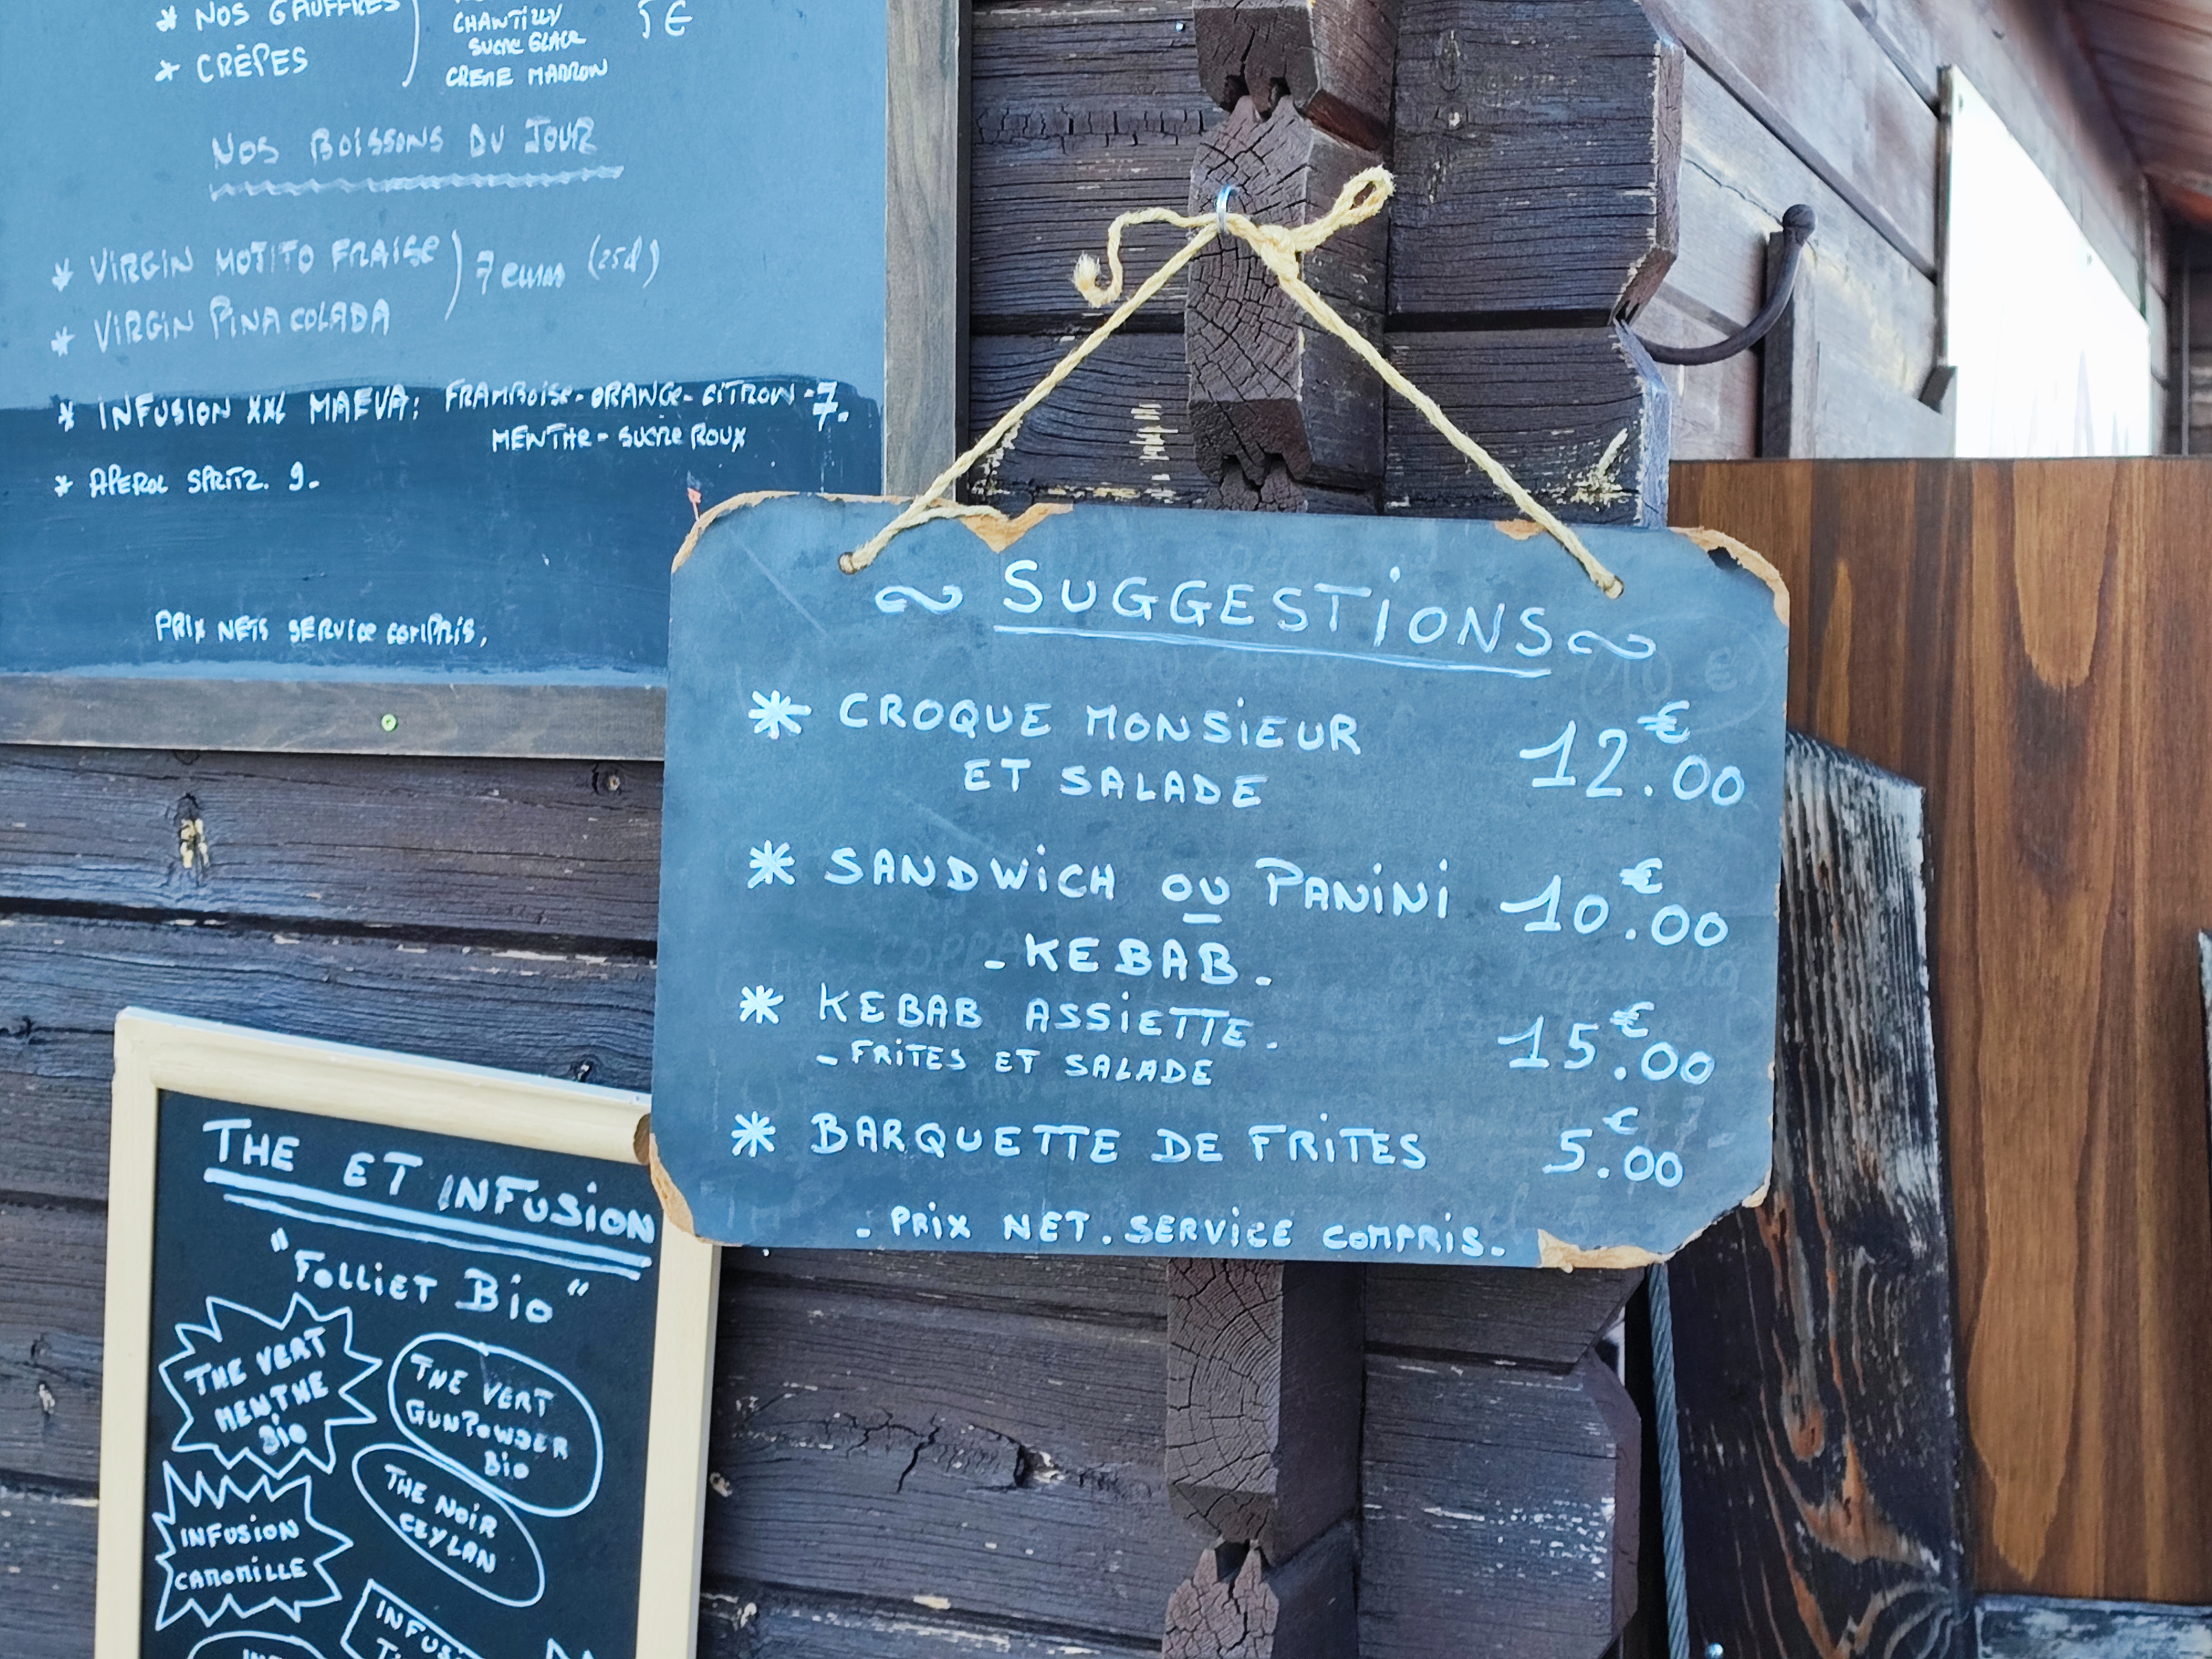 * NOS GAUFFRES
* CRÊPES
CHANTILLY
SUCRE GLACE
CREME MARRON
5 €
NOS BOISSONS DU JOUR
* VIRGIN MOTITO FRAISE
* VIRGIN PINA COLADA
7 euros (25cl)
* INFUSION XXL MAEVA: FRAMBOISE-ORANGE-CITRON-7.
MENTHE-SUCRE ROUX
* APEROL SPRITZ. 9.
PRIX NETS SERVICE COMPRIS.
~ SUGGESTIONS ~
* CROQUE MONSIEUR
ET SALADE 12.00 €
* SANDWICH OU PANINI 10.00 €
- KEBAB.
* KEBAB ASSIETTE. 15.00 €
- FRITES ET SALADE
* BARQUETTE DE FRITES 5.00 €
- PRIX NET. SERVICE COMPRIS.
THE ET INFUSION
"Folliet Bio"
THE VERT
MENTHE
Bio
THE VERT
GUNPOWDER
Bio
THE NOIR
CEYLAN
INFUSION
CAMOMILLE